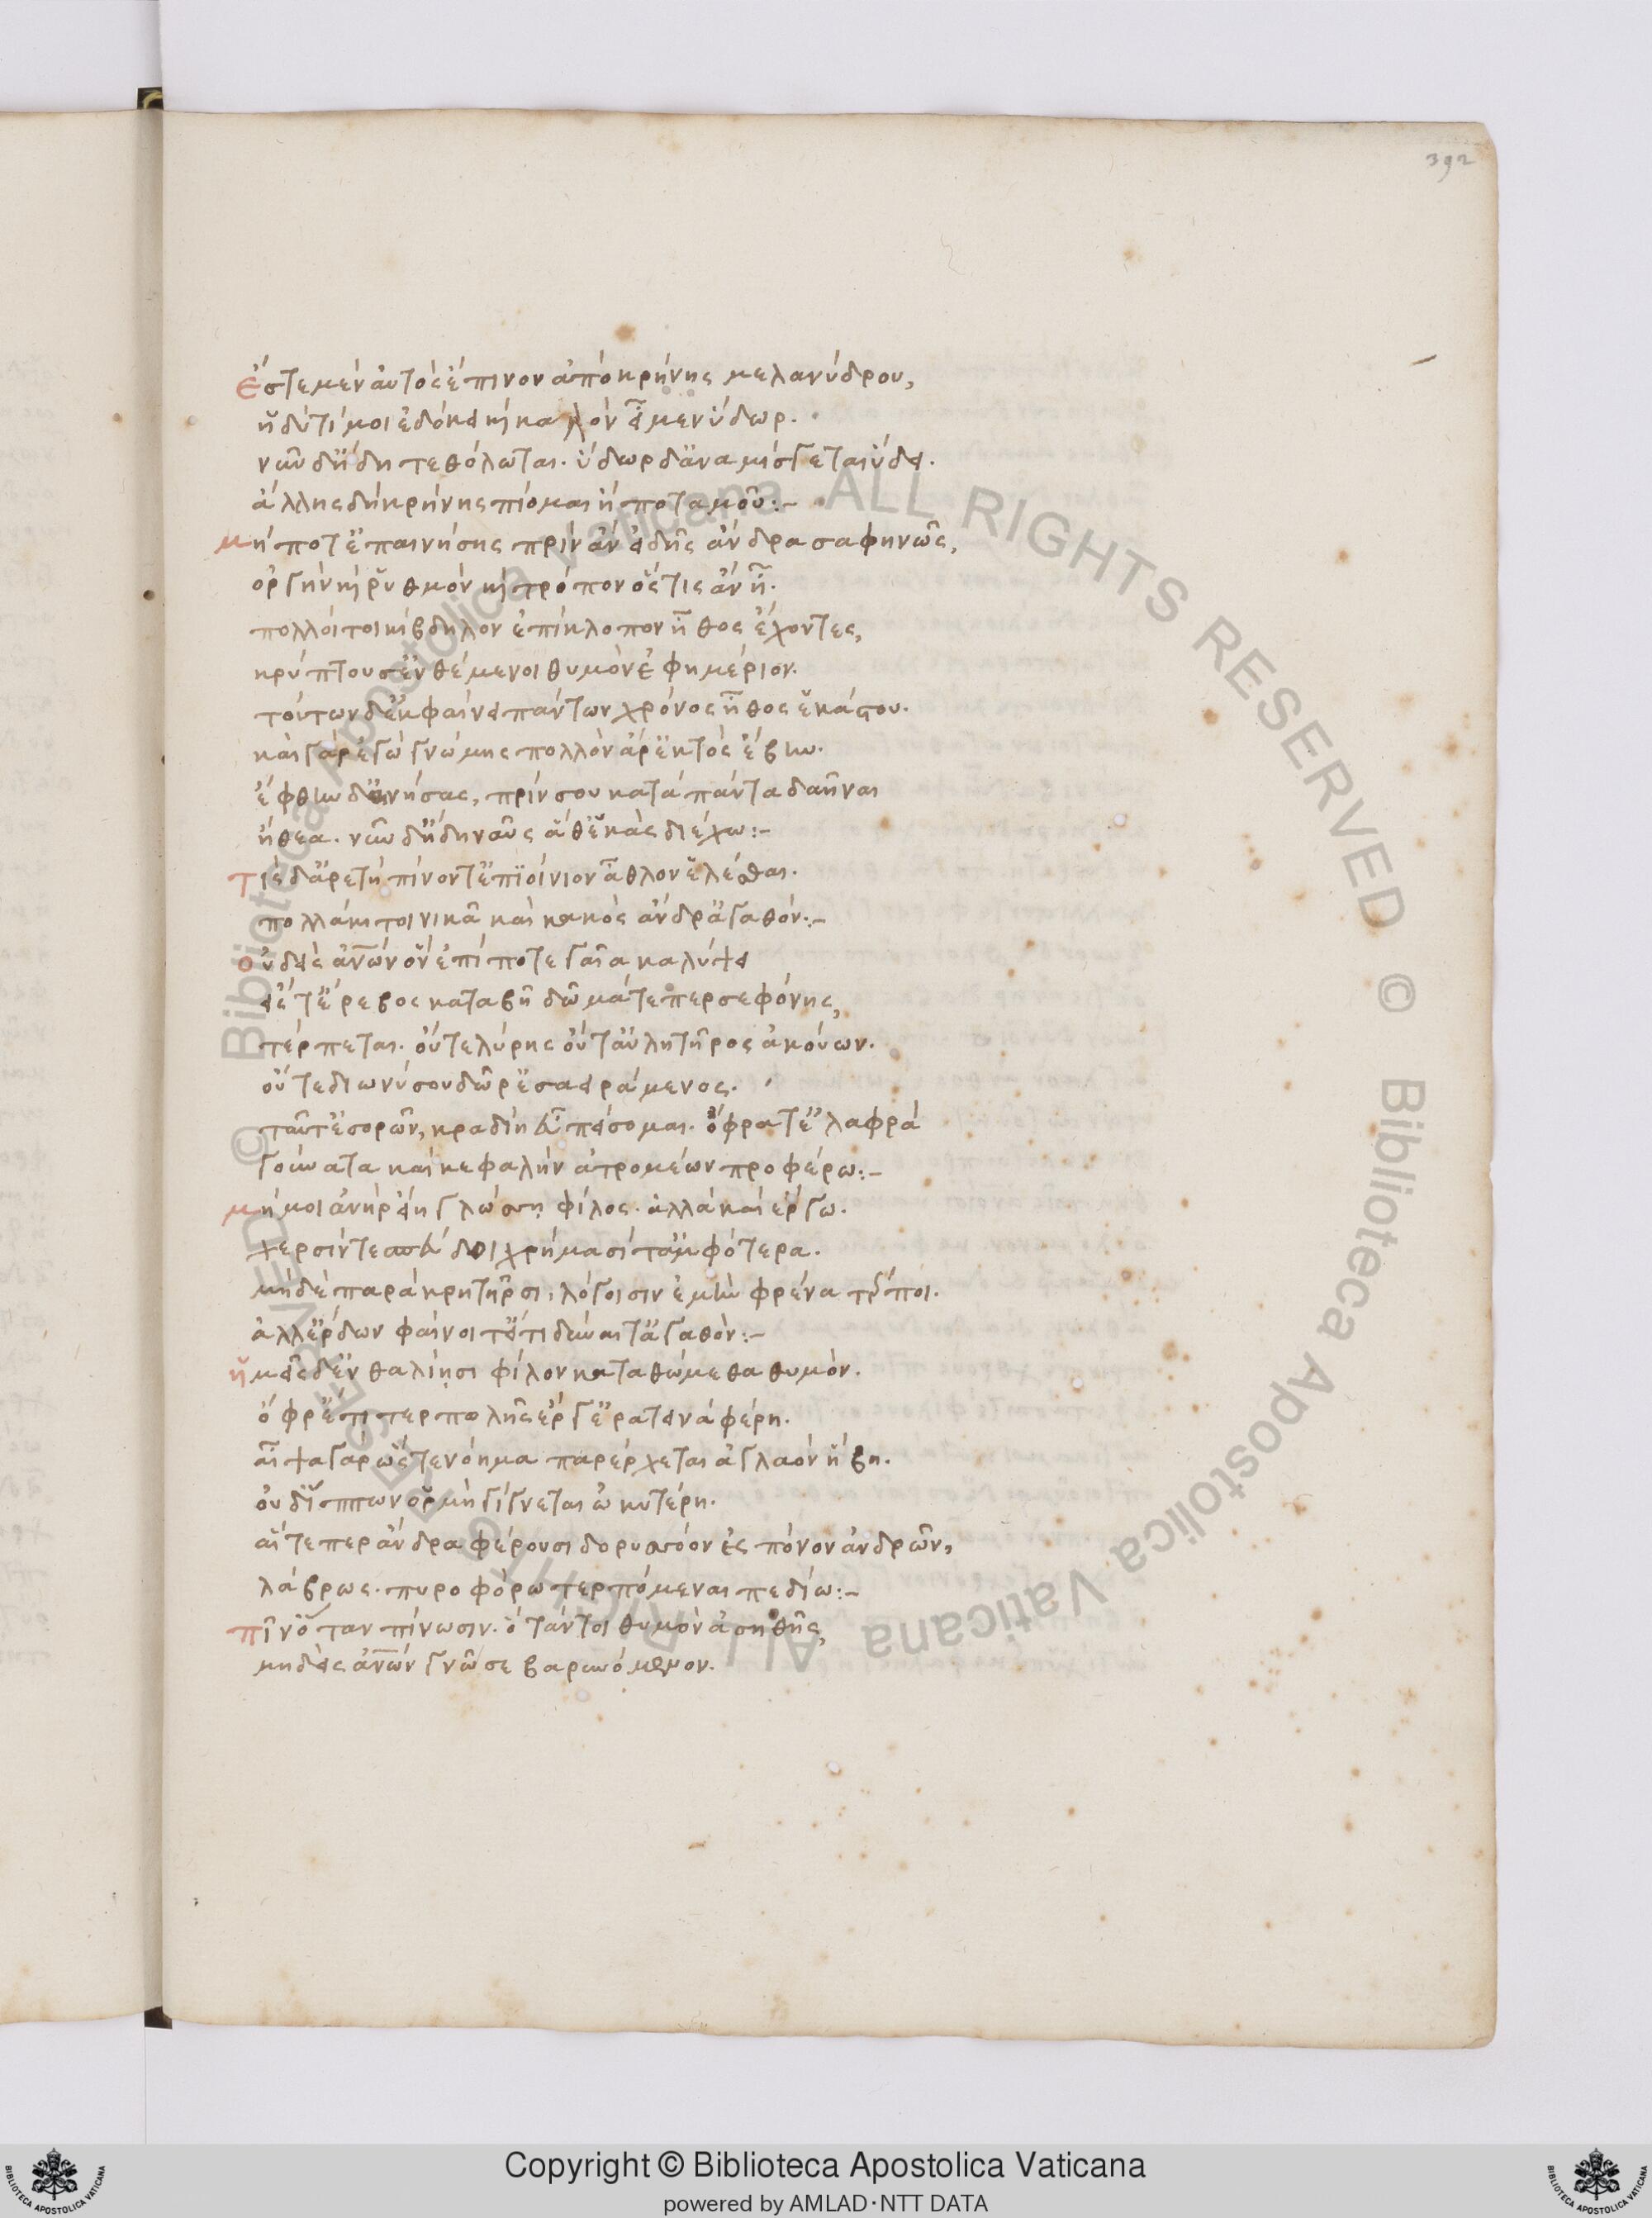 392
ἔστε μὲν αὐτὸς ἔπινον ἀπὸ κρήνης μελανύδρου,
ἡδύ τί μοι ἐδόκει κὴ καλὸν εἶμεν ὕδωρ.
νῦν δ' ἤδη τεθόλωται. ὕδωρ δ' ἀναμίσγεται ὕδει.
ἄλλης δὴ κρήνης πίομαι ἢ ποταμοῦ:-
μή ποτ' ἐπαινήσης πρὶν ἂν εἰδῆς ἄνδρα σαφηνῶς,
ὀργὴν κὴ ῥυθμὸν κὴ τρόπον ὅστις ἂν ᾖ.
πολλοί τοι κίβδηλον ἐπίκλοπον ἦθος ἔχοντες,
κρύπτουσ' ἐνθέμενοι θυμὸν ἐφημέριον.
τούτων δ' ἐκφαίνει πάντων χρόνος ἦθος ἑκάστου.
καὶ γὰρ ἐγὼ γνώμης πολλὸν ἄρ' ἐκτὸς ἔβην.
ἔφθην δ' αἰνήσας, πρίν σου κατὰ πάντα δαῆναι
ἤθεα. νῦν δ' ἤδη ναῦς ἅθ' ἑκὰς διέχω:-
τίς δ' ἀρετὴ πίνοντ' ἐπὶ οἴνιον ἆθλον ἑλέσθαι.
πολλάκι τοι νικᾶ καὶ κακὸς ἄνδρ' ἀγαθόν:-
οὐδεὶς ἀνων ὃν ἐπί ποτε γαῖα καλύψει
εἴς τ' ἔρεβος καταβῆ δώματε περσεφόνης,
τέρπεται. οὔτε λύρης οὔτ' αὐλητῆρος ἀκούων.
οὔτε διωνύσου δῶρ' ἐσαειράμενος.
ταῦτ' ἐσορῶν, κραδίη εὖ πείσομαι. ὄφρα τ' ἐλαφρὰ
γούνατα καὶ κεφαλὴν ἀτρομέων προφέρω:-
μή μοι ἀνὴρ εἴη γλώσση φίλος. ἀλλὰ καὶ ἔργω.
χερσίν τε σπεύδοι χρήμασί τ' ἀμφότερα.
μηδὲ παρὰ κρητῆρσι, λόγοισιν ἐμὴν φρένα τρέποι.
ἀλλ' ἔρδων φαίνοιτ' εἴ τι δύναιτ' ἀγαθόν:-
ἡμεῖς δ' ἐν θαλίησι φίλον καταθώμεθα θυμόν.
ὄφρ' ἔτι τερπωλῆς ἔργ' ἐρατεινὰ φέρη.
αἶψα γὰρ ὥστε νόημα παρέρχεται ἀγλαὸν ἥβη.
οὐδ' ἵππων ὁρμὴ γίγνεται ὠκυτέρη.
αἵ τε περ ἄνδρα φέρουσι δορυσσόον ἐς πόνον ἀνδρῶν,
λάβρως. πυροφόρω τερπόμεναι πεδίω:-
πῖν' ὁπόταν πίνωσιν. ὅταν τοι θυμὸν ἀσηθῆς,
μηδεὶς ἀνων γνῶ σε βαρυνόμενον.
Copyright © Biblioteca Apostolica Vaticana
powered by AMLAD·NTT DATA
© Biblioteca Apostolica Vaticana ALL RIGHTS RESERVED © Biblioteca Apostolica Vaticana ALL RIGHTS RESERVED